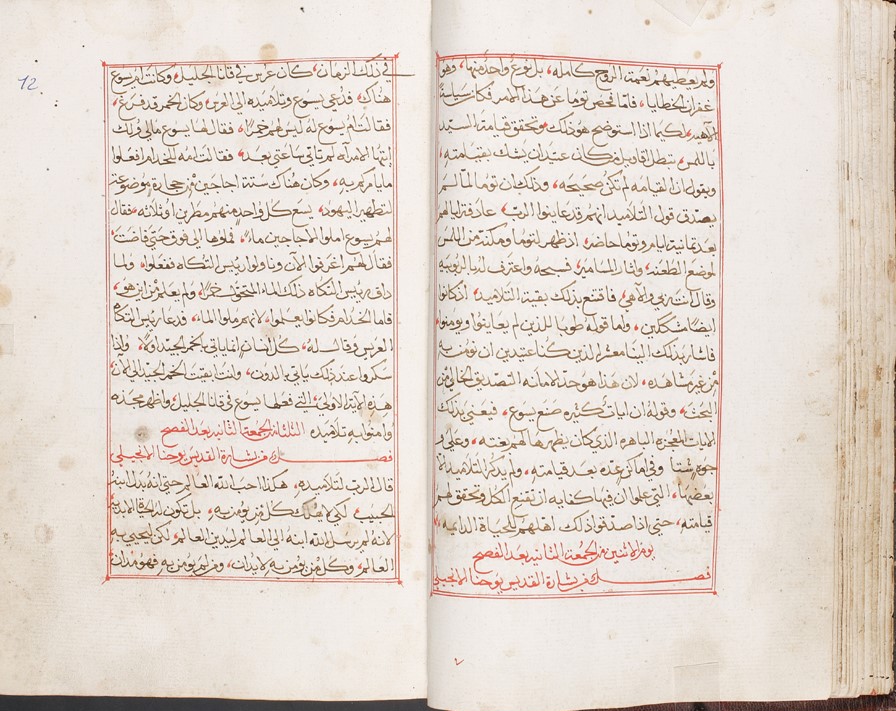 ولم يعطيهم نعمة الروح كامله، بل نوع واحد منها، وهو
غفران الخطايا، فاما فحص توما عن هذا الامر فكان سياسة
الاهيه، لكيما اذا استوضح هو ذلك وتحقق قيامة السيد
باللمس، يبطل اقاويل من كان عتيد ان يشك بقيامته،
ويقول ان القيامه لم تكن صحيحه، وذلك ان توما لما لم
يصدق قول التلاميذ انهم قد عاينوا الرب، عاد فتراءا لهم
بعد ثمانية ايام وتوما حاضر، اذ ظهر لتوما ومكنه من اللمس
لوضع الطعنه، واثار المسامير، فسبحه واعترف له بالربوبيه
وقال انت ربي والاهي، فاقنع بذلك بقية التلاميذ، اذ كانوا
ايضا متشككين، واما قوله طوبا للذين لم يعاينوا ويومنوا
فاشار بذلك الينا معشر الذين كنا عتيدين ان نومن به
من غير مشاهده، لان هذا هو حد الامانه التصديق الخالي من
البحث، وقوله ان ايات كثيره صنع يسوع، فيعني بذلك
الايات المعجزه الباهره الذي كان يظهرها لهم بغته، وعلى
جوه شتا وفي اماكن عده بعد قيامته، ولم يذكر التلاميذ الا
بعضها، التي علموا ان فيها كفايه ان تقنع الكل وتحقق لهم
قيامته، حتى اذا صدقوا ذلك اهلهم للحياة الدايمه،
يوم الاثنين من الجمعة الثانيه بعد الفصح
فصل من بشارة القديس يوحنا الانجيلي
٧
12
في ذلك الزمان، كان عرس في قانا الجليل، وكانت ام يسوع
هناك، فدعي يسوع وتلاميذه الى العرس، وكان الخمر قد فرغ،
فقالت ام يسوع له ليس لهم خمرا، فقال لها يسوع مالي ولك
ايتها الامراه لم تاتي ساعتي بعد، فقالت امه للخدام افعلوا
ما يامركم به، وكان هناك ستة اجاجين من حجاره موضوعة
لتطهير اليهود، يسع كل واحد منهم مطرين او ثلاثه، فقال
لهم يسوع املوا الاجاجين ماء، فملوها الى فوق حتى فاضت،
فقال لهم اغرفوا الان وناولوا رييس التكاه ففعلوا، ولما
ذاق رييس التكاه ذلك الماء المتحول خمرا، ولم يعلم من اين هو،
فاما الخدام فكانوا يعلموا، لانهم ملوا الماء، فدعا رييس التكاه
العريس وقال له، كل انسان انما ياتي بالخمر الجيد اولا، واذا
سكروا عند ذلك ياتي بالدون، وانت ابقيت الخمر الجيد الى الان،
هذه الاية الاولى، التي فعلها يسوع في قانا الجليل، واظهر مجده
وامنوا به تلاميذه الثلاثا من الجمعة الثانيه بعد الفصح
فصل من بشارة القديس يوحنا الانجيلي
قال الرب لتلاميذه، هكذا احب الله العالم حتى انه بذل ابنه
الحبيب، لكي لا يهلك كل من يومن به، بل تكون له الحياة الابديه
لانه لم يرسل الله ابنه الى العالم ليدين العالم، لكن ليحيي به
العالم، وكل من يومن به لا يدان، ومن لم يومن به فهو مدان